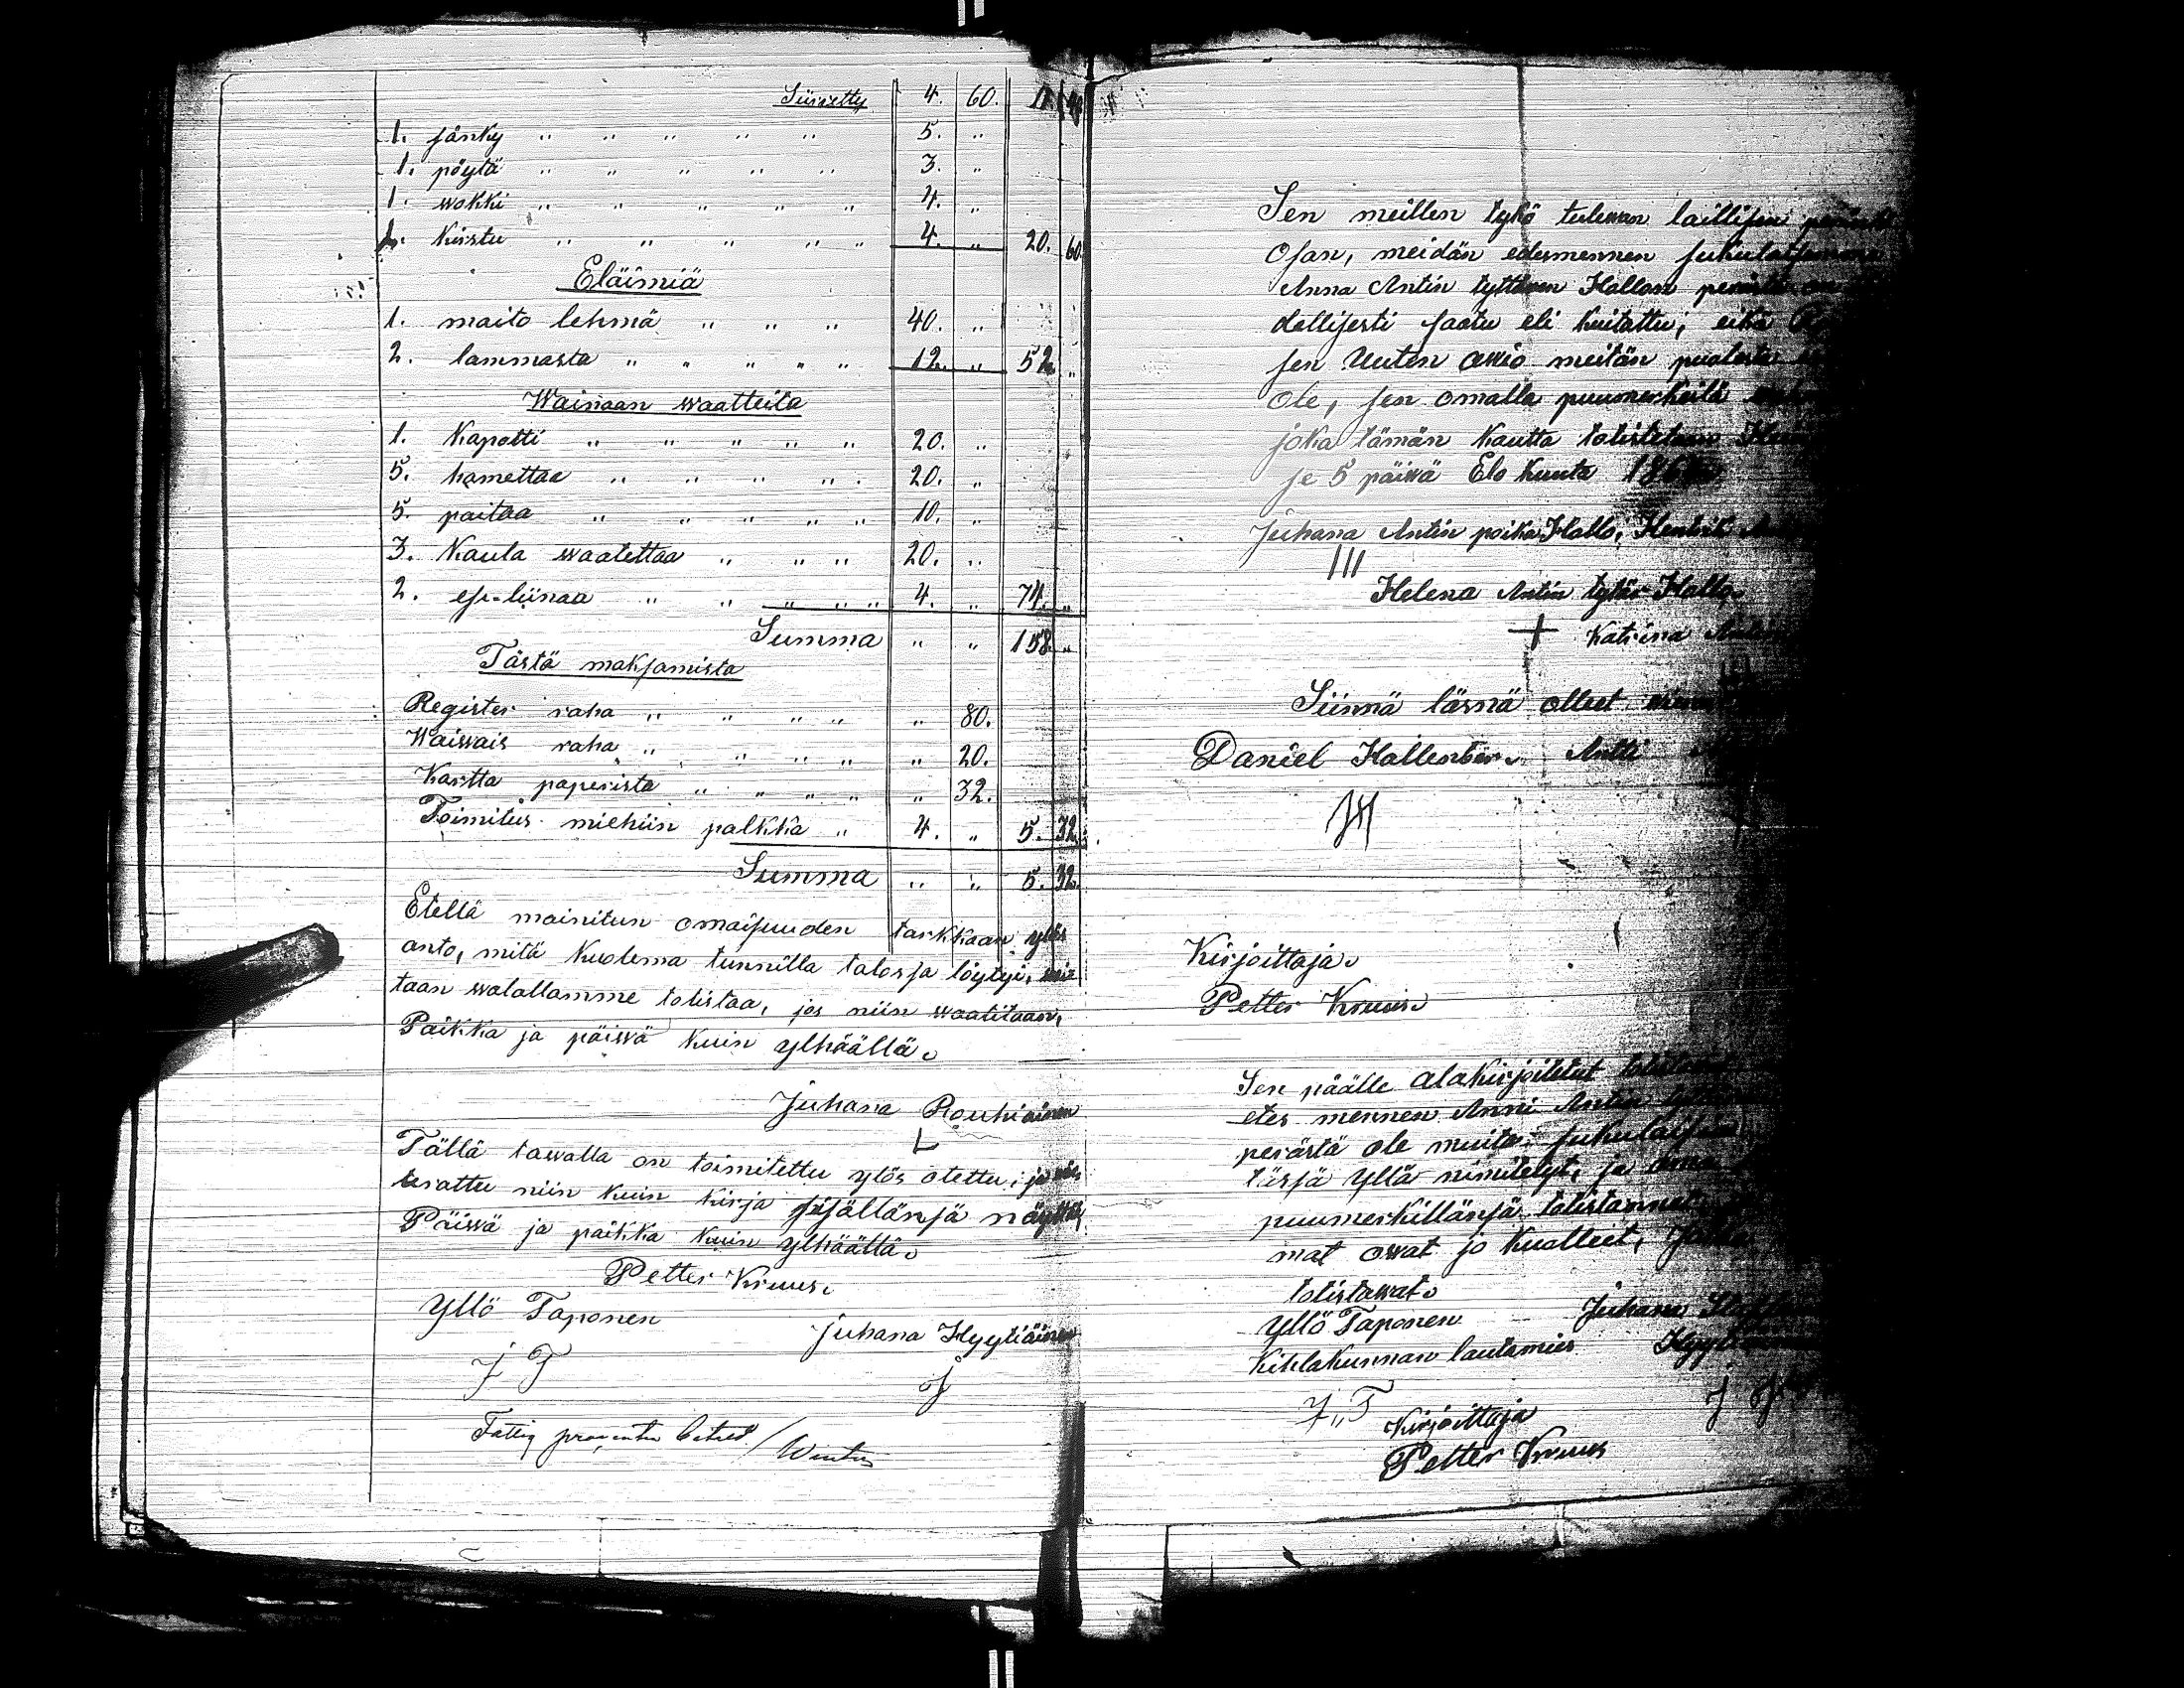 Siirretty 4. 60. 11. 40
1. sänky " " " " " 5. "
1. pöytä " " " " " 3. "
1. wokki " " " " " 4. "
1. kirstu " " " " " 4. " 20. 60.
Eläimiä
1. maito lehmä " " " 40. "
2. lammasta " " " " " 12. " 52. "
Waimoan waatteita
1. Kapotti " " " " " 20. "
5. hamettaa " " " " " 20. "
5. paitaa " " " " " 10. "
3. Kaula waatettaa " " " 20. "
2. esi-liinaa " " " " " 4. " 74. "
Summa " " 158. "
Tästä maksamista
Register raha " " " " " 80.
Waiwais raha " " " " " 20.
Kartta paperista " " " " " 32.
Toimitus miehiin palkka " 4. " 5. 32.
Summa " " 5. 32.
Etellä mainitun omaisuuden tarkkaan ylös
anto, mitä kuolema tunnilla talossa löytyi,
taan walallamme totistaa, jos niin waatitaan.
Paikka ja päiwä kuin ylhäällä.
Juhana Rouhiainen
Tällä tawalla on toimitettu ylös otettu; ja
terattu niin kuin kirja sisällänsä näyttää
Päiwä ja paikka kuin ylhäällä.
Petter Kruus.
Yllö Taponen
Juhana Hyytiäinen
J T
J
Fattig procenten betalt / Winter
Sen meillen tykö tulewan laillisen
Osan, meidän edesmennen sukulaisemme
Anna Antin tyttären Hallon perästä
dellisesti saatu eli kuitattu; eikä
sen Uuten awio meitän puolesta
ole, sen omalla puumerkeilä
joka tämän kautta totistetaan
se 5 päiwä Elo kuuta 186
Juhana Antin poika Hallo, Hentrik
III
Helena Antin tytär Hallo.
+ Katrina
Siinnä läsnä olleet
Daniel Hallenber. Antti
Kirjoittaja.
Petter Kruus.
Sen päälle alakirjoitetut totistawat
etes mennen Anni Antin
perästä ole muita sukulaisia
tässä yllä nimitetyt, ja
puumerkillänsä totistanneet
mat owat jo kuolleet,
totistawat.
Yllö Taponen Juhana
Kihlakunnan lautamies Hyytiäinen
J"T J
Kirjoittaja
Petter Kruus